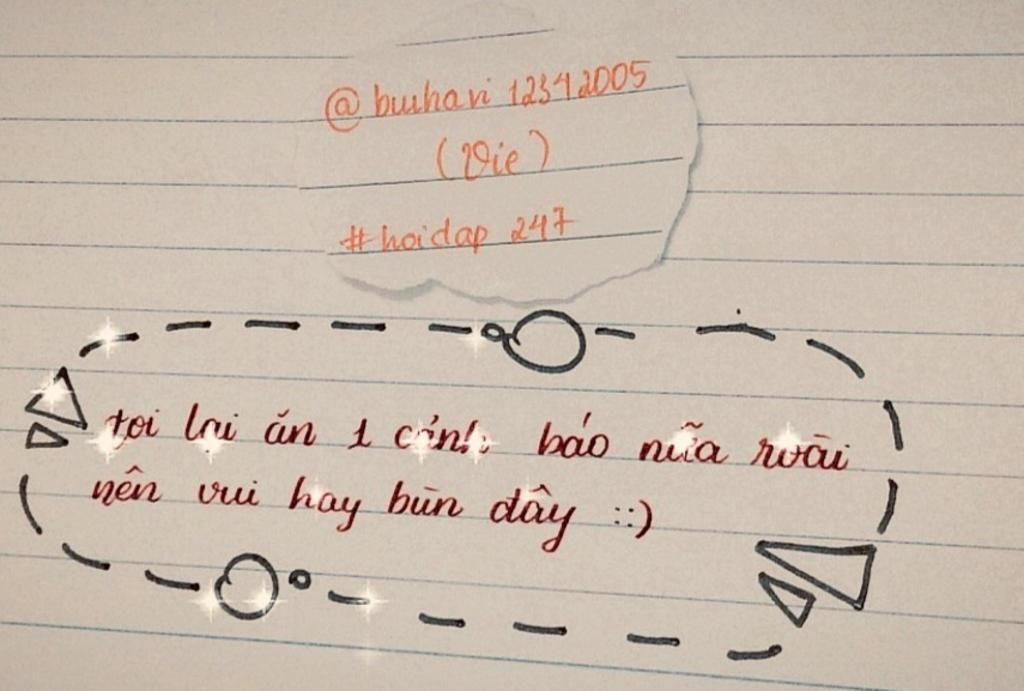 @buihavi12342005
(Vie)
#hoidap 247
tơi lại ăn 1 cảnh báo nữa rồài
nên vui hay bùn đây ::)